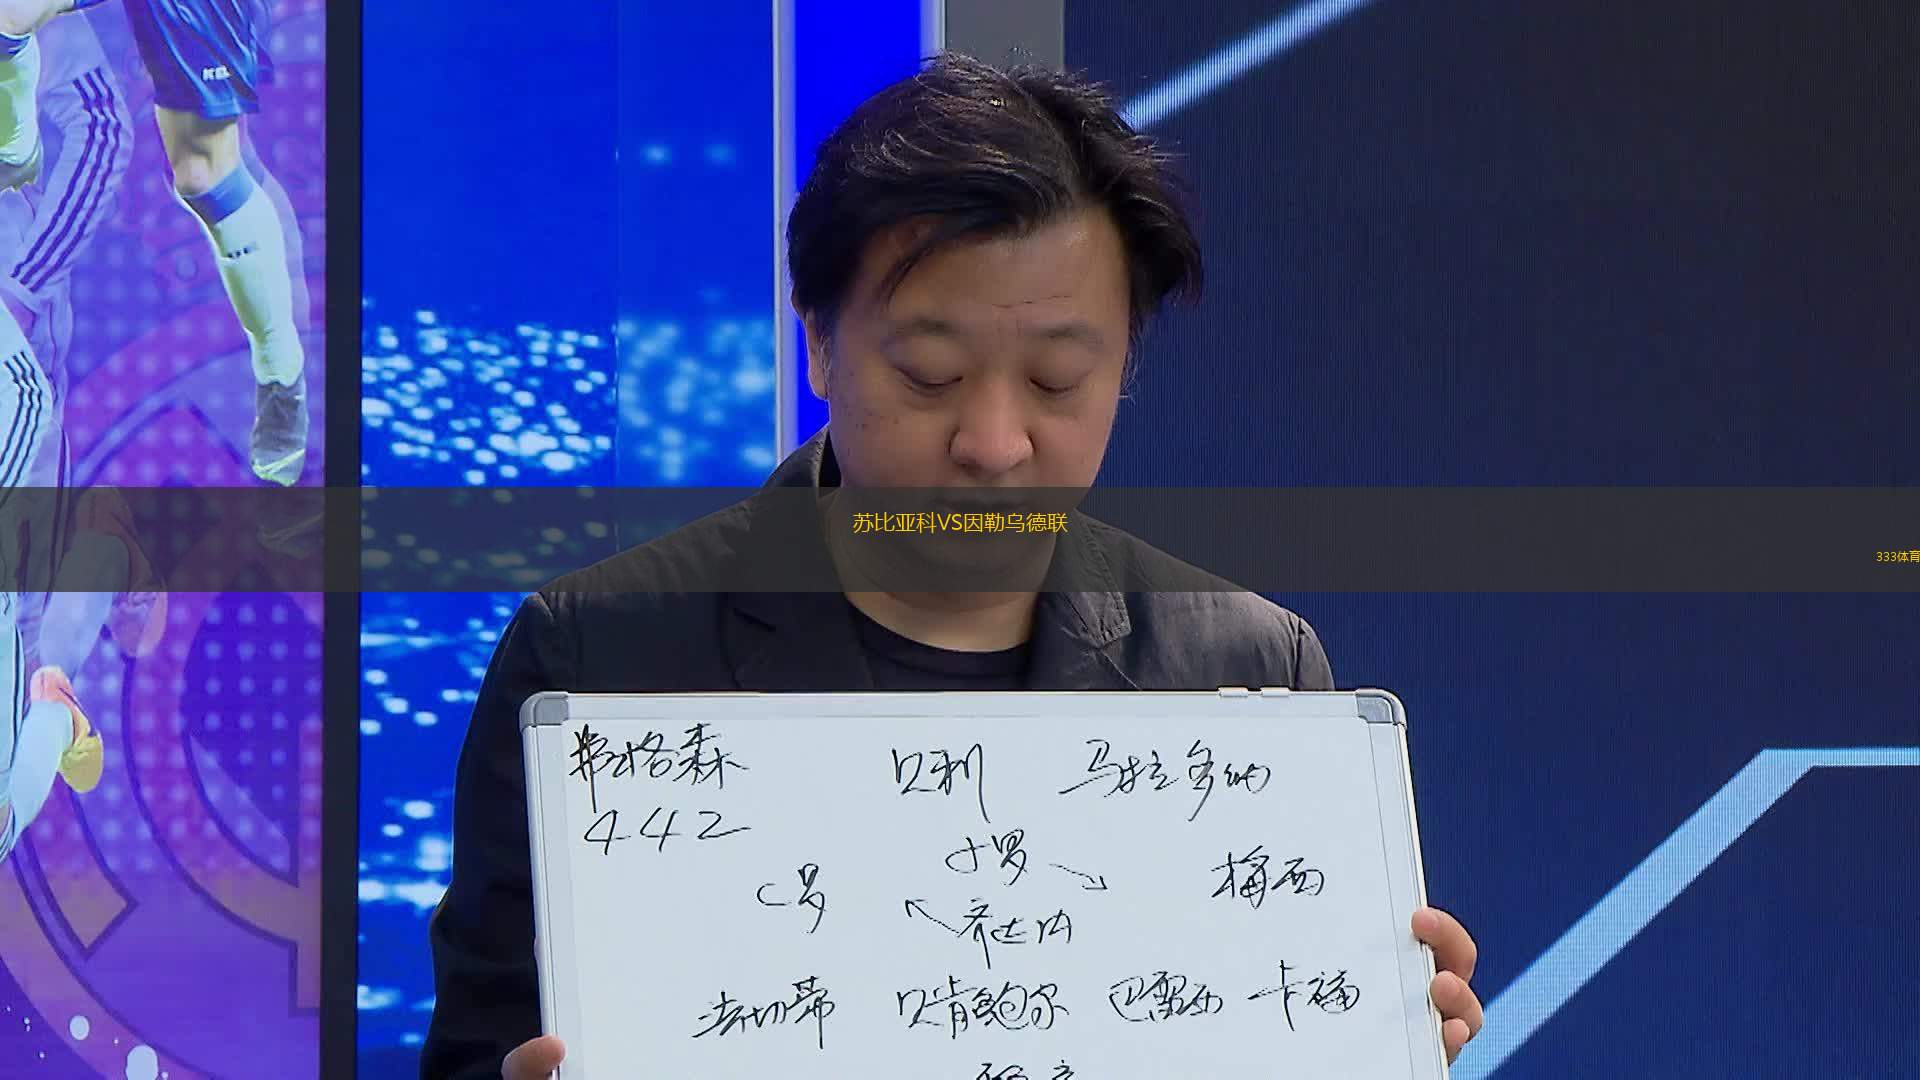 苏比亚科VS因勒乌德联
333体育
弗格森 贝利 马拉多纳
442
小罗
C罗 梅西
齐达内
法切蒂 贝肯鲍尔 巴雷西 卡福